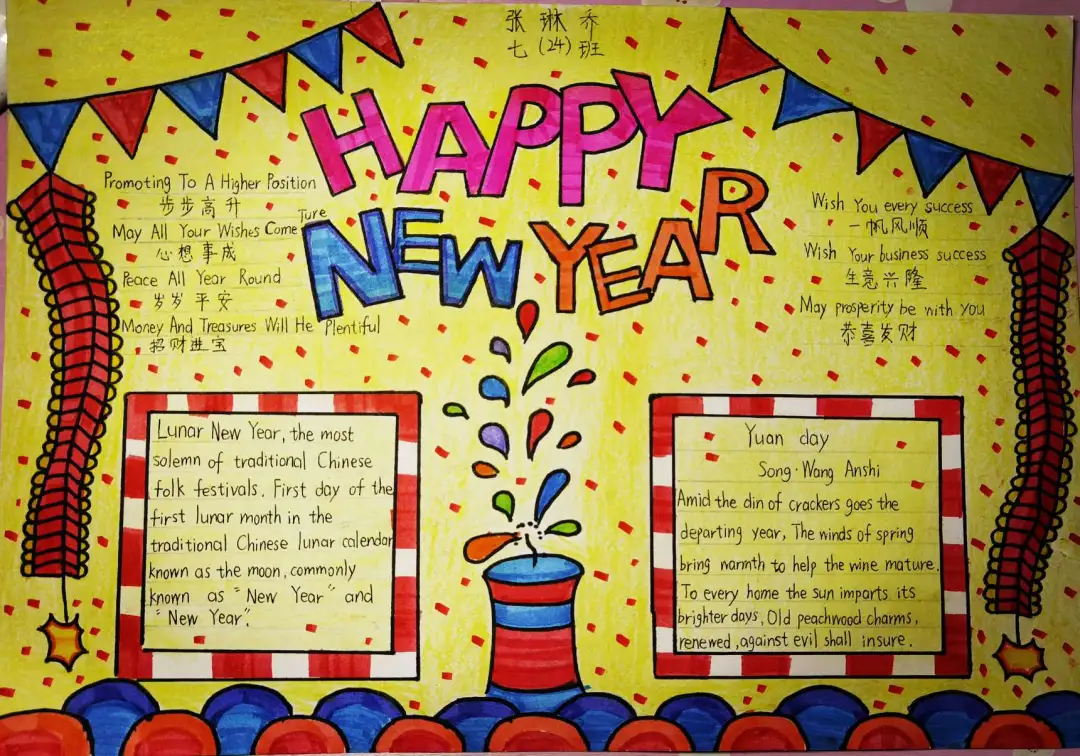 张琳乔
七(24)班
HAPPY
NEW YEAR
Promoting To A Higher Position
步步高升
May All Your Wishes Come Ture
心想事成
Peace All Year Round
岁岁平安
Money And Treasures Will He Plentiful
招财进宝
Wish You every success
一帆风顺
Wish Your business success
生意兴隆
May prosperity be with you
恭喜发财
Lunar New Year, the most
solemn of traditional Chinese
folk festivals. First day of the
first lunar month in the
traditional Chinese lunar calendar
known as the moon, commonly
known as "New Year" and
"New Year".
Yuan day
Song·Wang Anshi
Amid the din of crackers goes the
departing year, The winds of spring
bring warmth to help the wine mature.
To every home the sun imparts its
brighter days, Old peachwood charms,
renewed, against evil shall insure.